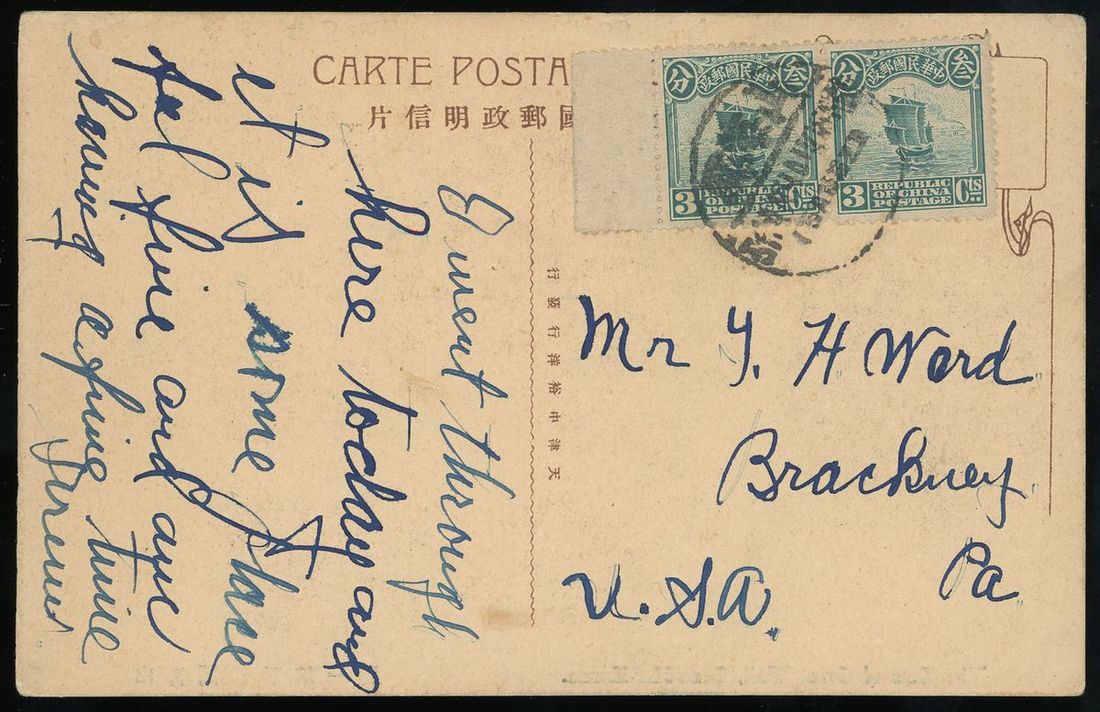 CARTE POSTA
國郵政明信片
I went through
here today and
it is some place
feel fine and am
having a fine time
天津中裕洋行發行
中華民國郵政
叁分
3 Cts
REPUBLIC
OF CHINA
POSTAGE
中華民國郵政
叁分
3 Cts
REPUBLIC
OF CHINA
POSTAGE
Mr
H Word
Brackney
Pa
U.S.A.